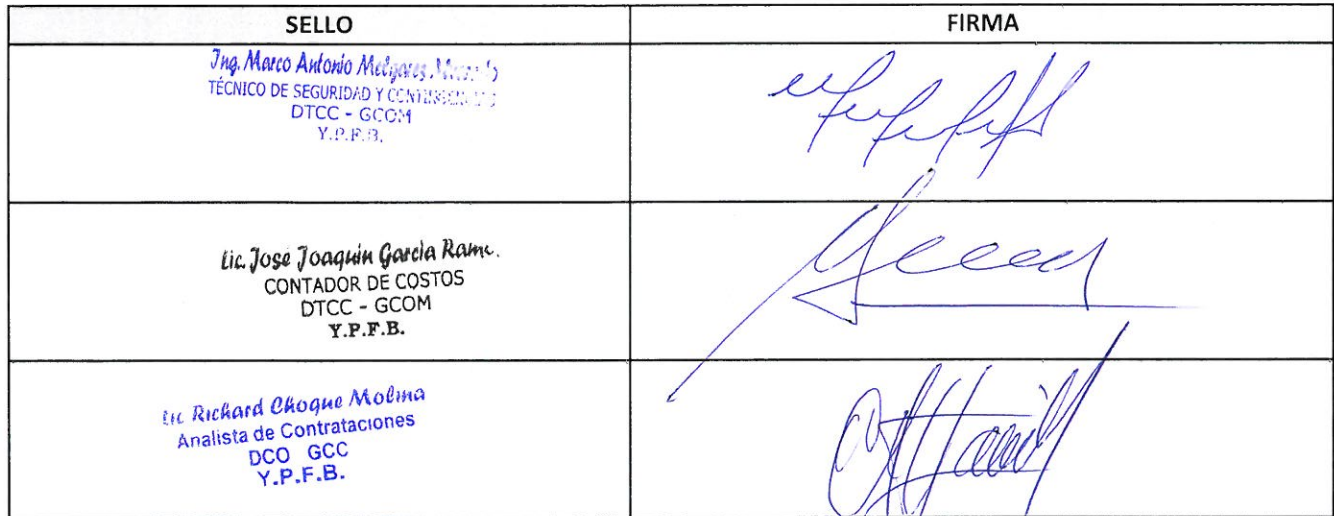 SELLO FIRMA
Ing. Marco Antonio Melgares
TÉCNICO DE SEGURIDAD Y
DTCC - GCOM
Y.P.F.B.
Lic. José Joaquin García
CONTADOR DE COSTOS
DTCC - GCOM
Y.P.F.B.
Lic. Richard Choque Molina
Analista de Contrataciones
DCO GCC
Y.P.F.B.